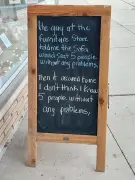 The guy at the
furniture store
told me the sofa
would seat 5 people
without any problems.
Then it occured to me
I don't think I know
5 people without
any problems.